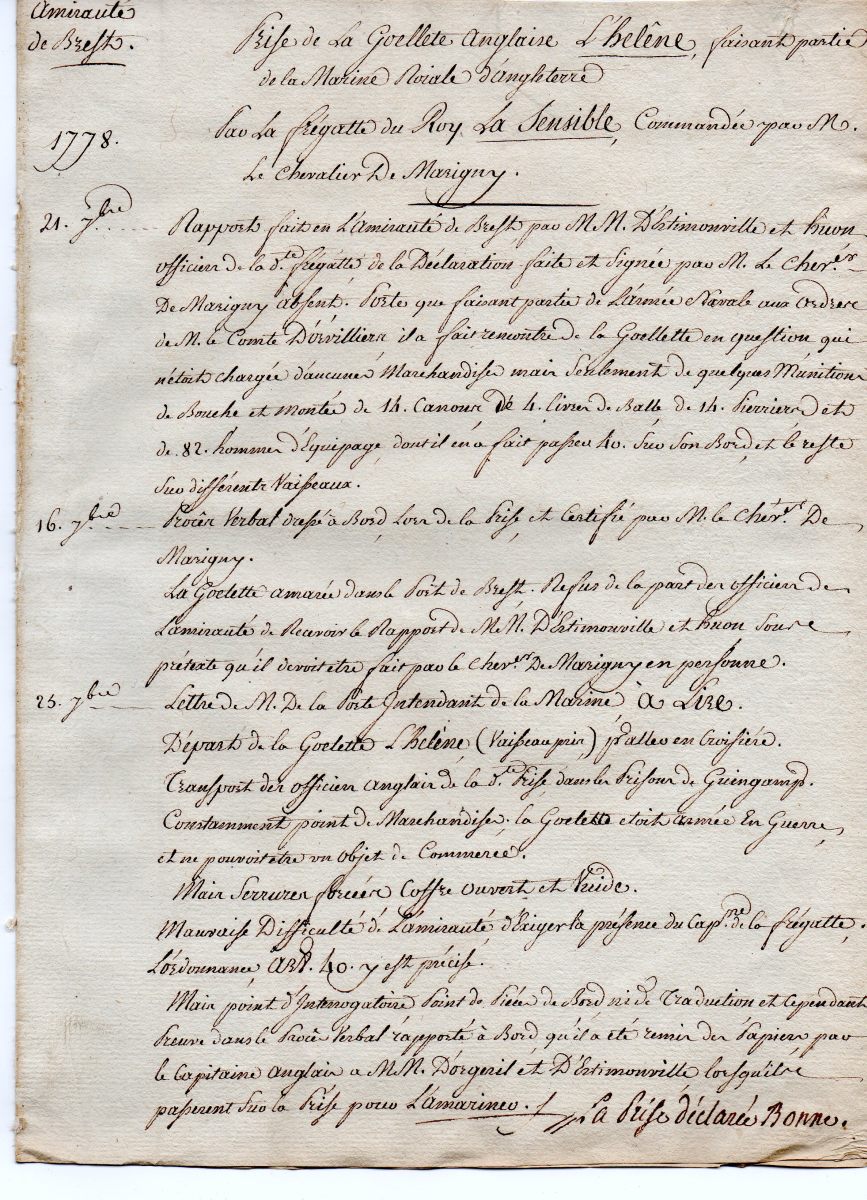 Amirauté
de Brest.
Prise de La Goellete anglaise L'helêne, faisant partie
de la Marine Roiale d'angleterre
1778.
Par La frégatte du Roy La Sensible, Commandée par M.
Le Chevalier De Marigny.
21. 7bre
Rapport fait en L'amirauté de Brest par MM. D'Estimonville et huon
officiers de la d.te frégatte de la Déclaration faite et signée par M. Le Cher.er
De Marigny absent. Porte que faisant partie de L'armée Navale aux ordres
de M. le Comte D'orvilliers il a fait rencontre de la Goellette en question qui
n'étoit chargée d'aucunes Marchandises mais Seulement de quelques Munitions
de Bouche et montée de 14. Canons de 4. livres de Balle de 14. Pierriers et
de 82. hommes d'Equipage dont il en a fait passer 40. Sur Son Bord et le reste
Sur différents Vaisseaux.
16. 7bre
Procès Verbal dressé à Bord Lors de la Prise et Certifié par M. le Cher. De
Marigny.
La Goelette amarée dans le Port de Brest. Refus de la part des officiers de
L'amirauté de Recevoir le Rapport de MM. D'Estimonville et huon sous
prétexte qu'il devoit etre fait par le Cher. De Marigny en personne.
25. 7bre
Lettre de M. De la Porte Intendant de la Marine à Lire.
Départ de la Goelette L'heléne (Vaisseau pris) p.r aller en Croisiére.
Transport des officiers anglais de la d.te Prise dans les Prisons de Guingamp.
Constamment point de Marchandises. la Goelette etoit armée En Guerre,
et ne pouvoit etre un objet de Commerce.
Mais Serrures forcées Coffre ouvert et Vuide.
Mauvaise Difficulté de L'amirauté d'Exiger la présence du Cap.ne de la frégatte.
L'ordonnance art. 40. y est précise.
Mais point d'Interrogatoire Point de Piéces de Bord ni de Traduction et Cependant
Preuve dans le Procès Verbal rapporté à Bord qu'il a été remis des Papiers par
le Capitaine anglais a MM. D'orgeril et D'Estimonville lorsqu'ils
passerent Sur la Prise pour L'amariner.
La Prise déclarée Bonne.